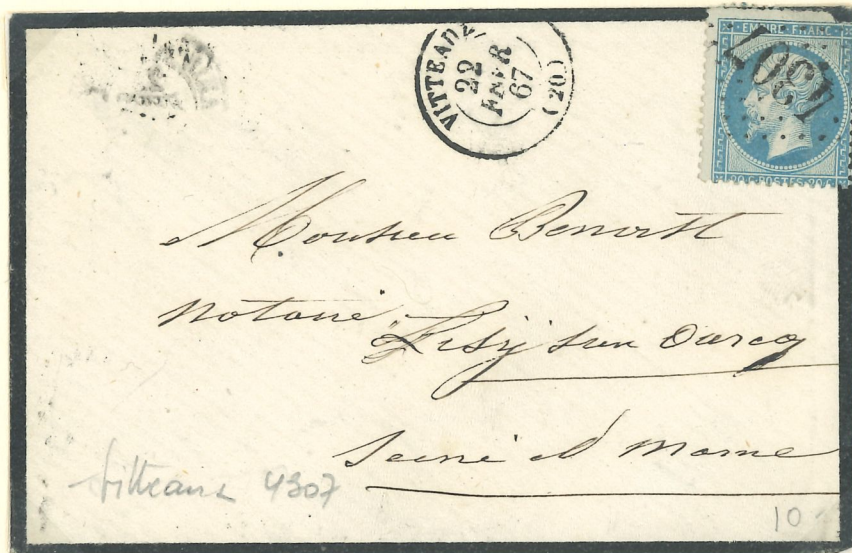 VITTEAUX
22
FEVR
67
(20)
EMPIRE FRANC
4307
20 C POSTES 20 C
Monsieur Benoist
Notaire
à Lisy sur Ourcq
Seine et Marne
Vitteaux 4307
10